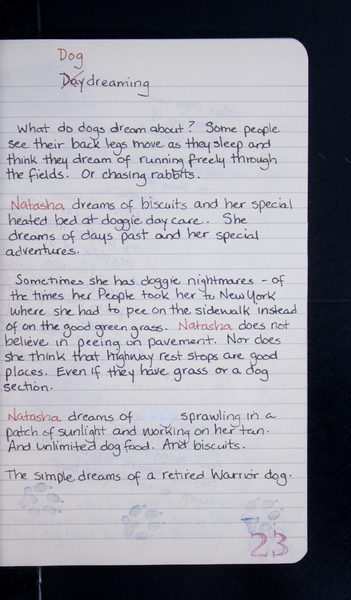 Dog
Daydreaming
What do dogs dream about? Some people
see their back legs move as they sleep and
think they dream of running freely through
the fields. Or chasing rabbits.
Natasha dreams of biscuits and her special
heated bed at doggie day care. She
dreams of days past and her special
adventures.
Sometimes she has doggie nightmares - of
the times her People took her to New York
where she had to pee on the sidewalk instead
of on the good green grass. Natasha does not
believe in peeing on pavement. Nor does
she think that highway rest stops are good
places. Even if they have grass or a dog
section.
Natasha dreams of sprawling in a
patch of sunlight and working on her tan.
And unlimited dog food. And biscuits.
The simple dreams of a retired Warrior dog.
23